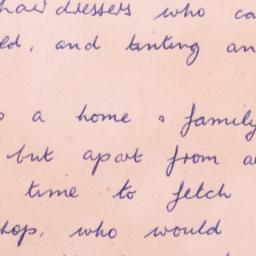 hairdressers who ca
ed, and tinting an
a home & family
but apart from a
time to fetch
hop, who would